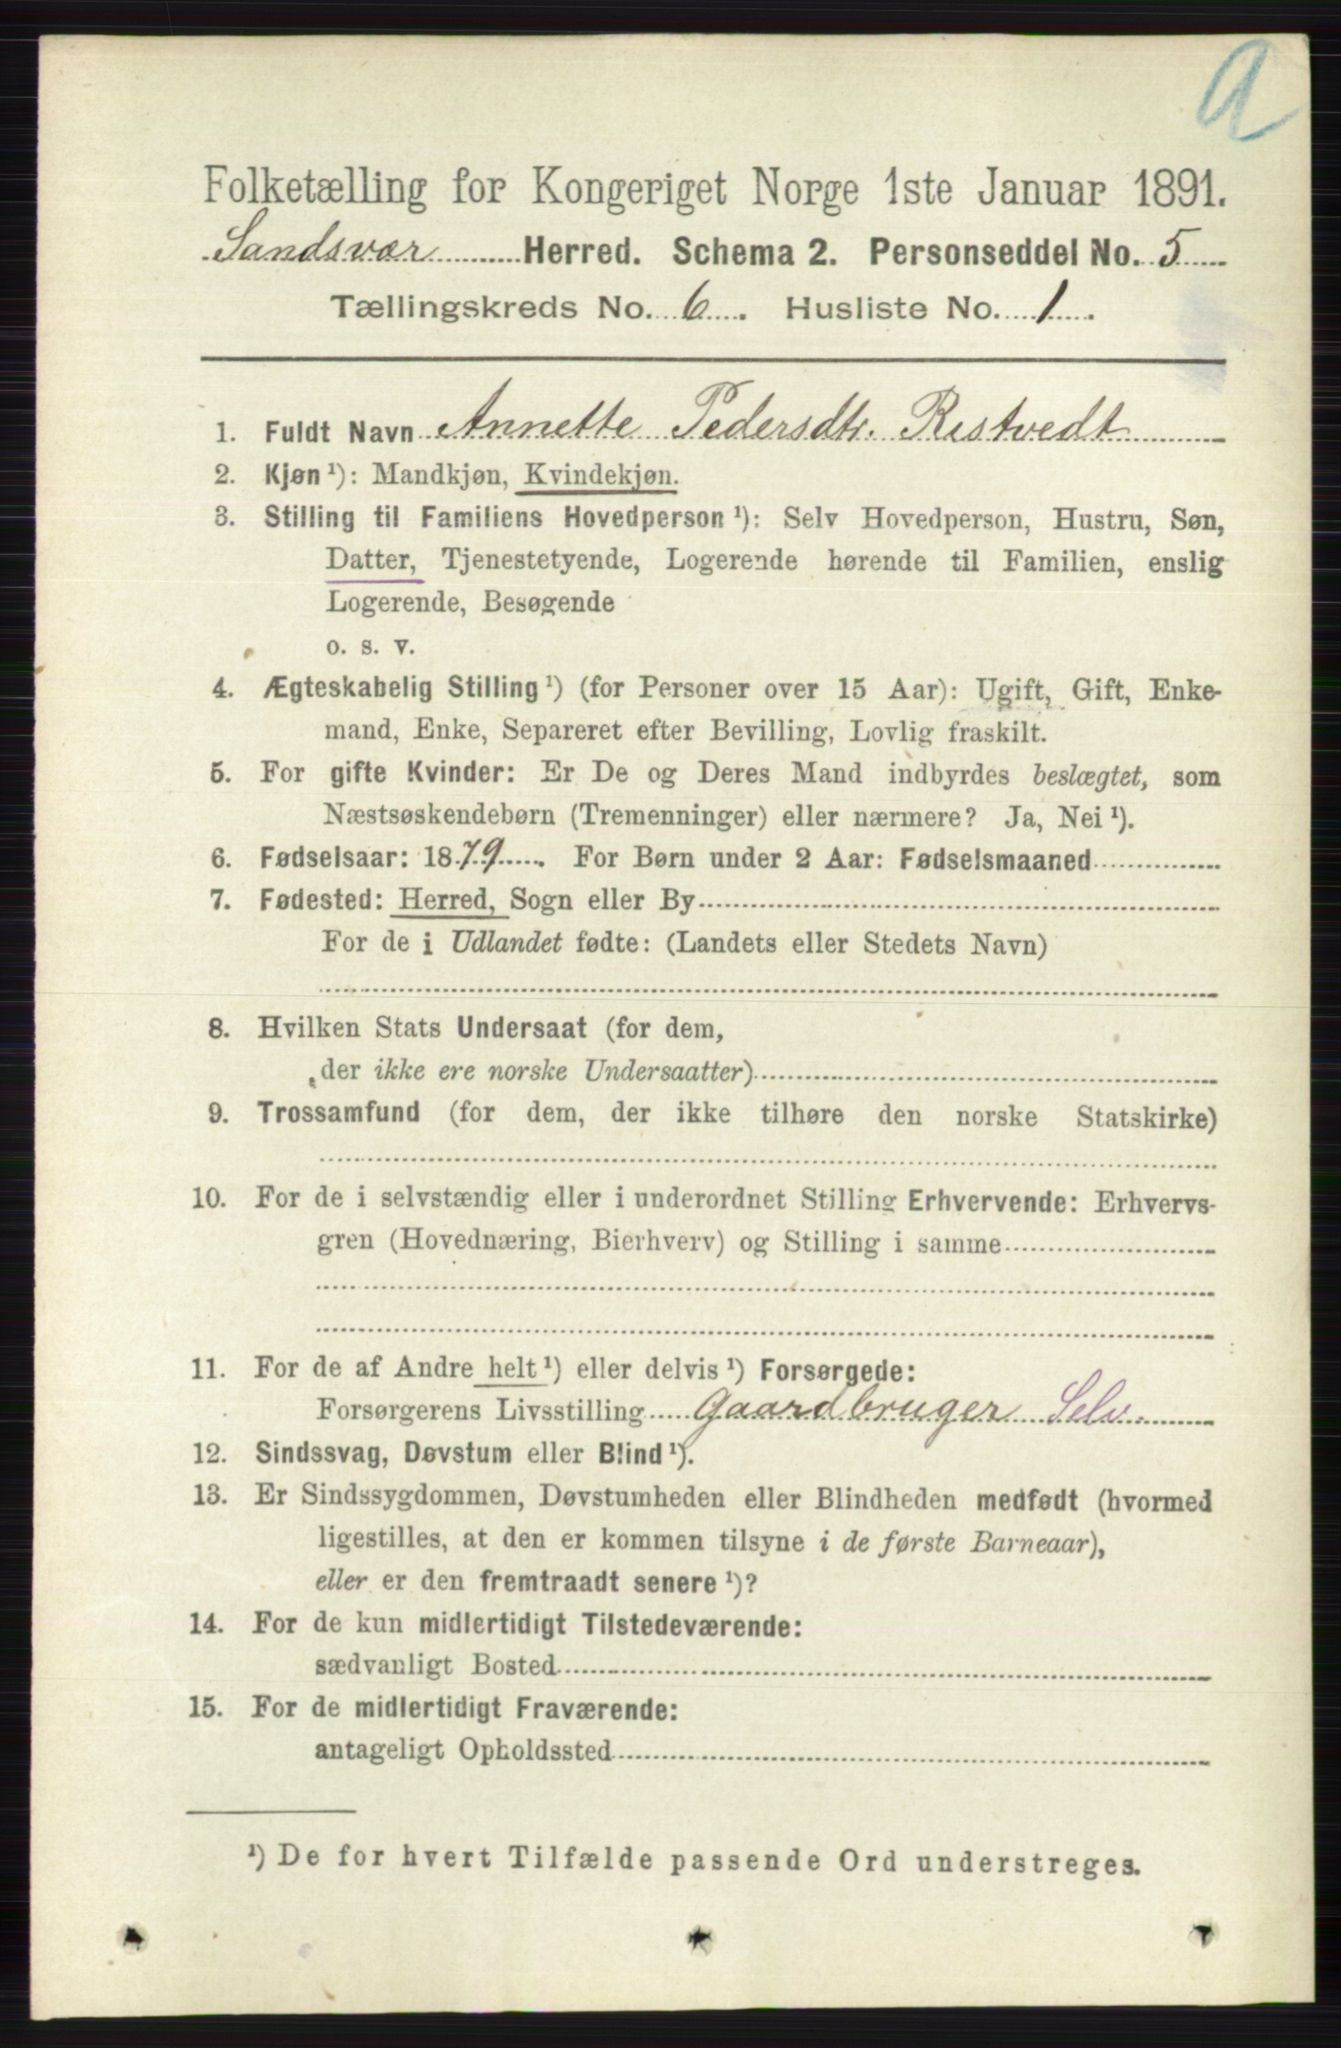 a
Folketælling for Kongeriget Norge 1ste Januar 1891.
Sandsvær Herred. Schema 2. Personseddel No. 5
Tællingskreds No. 6. Husliste No. 1.
1. Fuldt Navn Annette Pedersdtr. Ristvedt
2. Kjøn ¹): Mandkjøn, Kvindekjøn.
3. Stilling til Familiens Hovedperson ¹): Selv Hovedperson, Hustru, Søn,
Datter, Tjenestetyende, Logerende hørende til Familien, enslig
Logerende, Besøgende
o. s. v.
4. Ægteskabelig Stilling ¹) (for Personer over 15 Aar): Ugift, Gift, Enke-
mand, Enke, Separeret efter Bevilling, Lovlig fraskilt.
5. For gifte Kvinder: Er De og Deres Mand indbyrdes beslægtet, som
Næstsøskendebørn (Tremenninger) eller nærmere? Ja, Nei ¹).
6. Fødselsaar: 1879. For Børn under 2 Aar: Fødselsmaaned
7. Fødested: Herred, Sogn eller By
For de i Udlandet fødte: (Landets eller Stedets Navn)
8. Hvilken Stats Undersaat (for dem,
der ikke ere norske Undersaatter)
9. Trossamfund (for dem, der ikke tilhøre den norske Statskirke)
10. For de i selvstændig eller i underordnet Stilling Erhvervende: Erhvervs-
gren (Hovednæring, Bierhverv) og Stilling i samme
11. For de af Andre helt ¹) eller delvis ¹) Forsørgede:
Forsørgerens Livsstilling Gaardbruger Selv.
12. Sindssvag, Døvstum eller Blind ¹).
13. Er Sindssygdommen, Døvstumheden eller Blindheden medfødt (hvormed
ligestilles, at den er kommen tilsyne i de første Barneaar),
eller er den fremtraadt senere ¹)?
14. For de kun midlertidigt Tilstedeværende:
sædvanligt Bosted
15. For de midlertidigt Fraværende:
antageligt Opholdssted
¹) De for hvert Tilfælde passende Ord understreges.